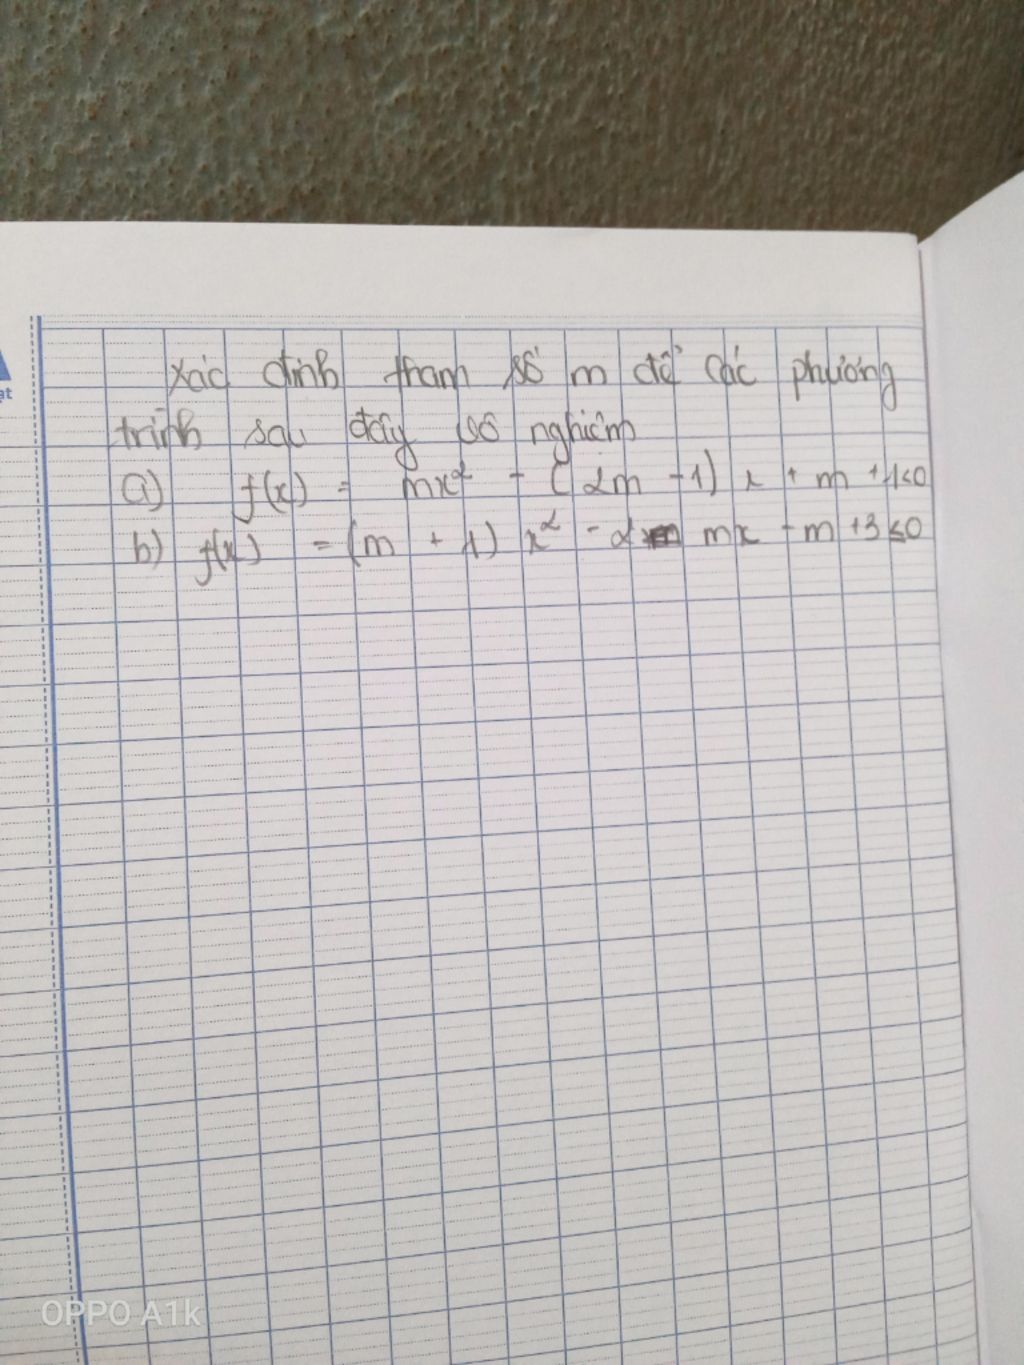 xác định tham số m để các phương
trình sau đây vô nghiệm
a) f(x) = mx² - (2m - 1) x + m + 1<0
b) f(x) = (m + 1) x² - 2 mx - m + 3 ≤0
OPPO A1k